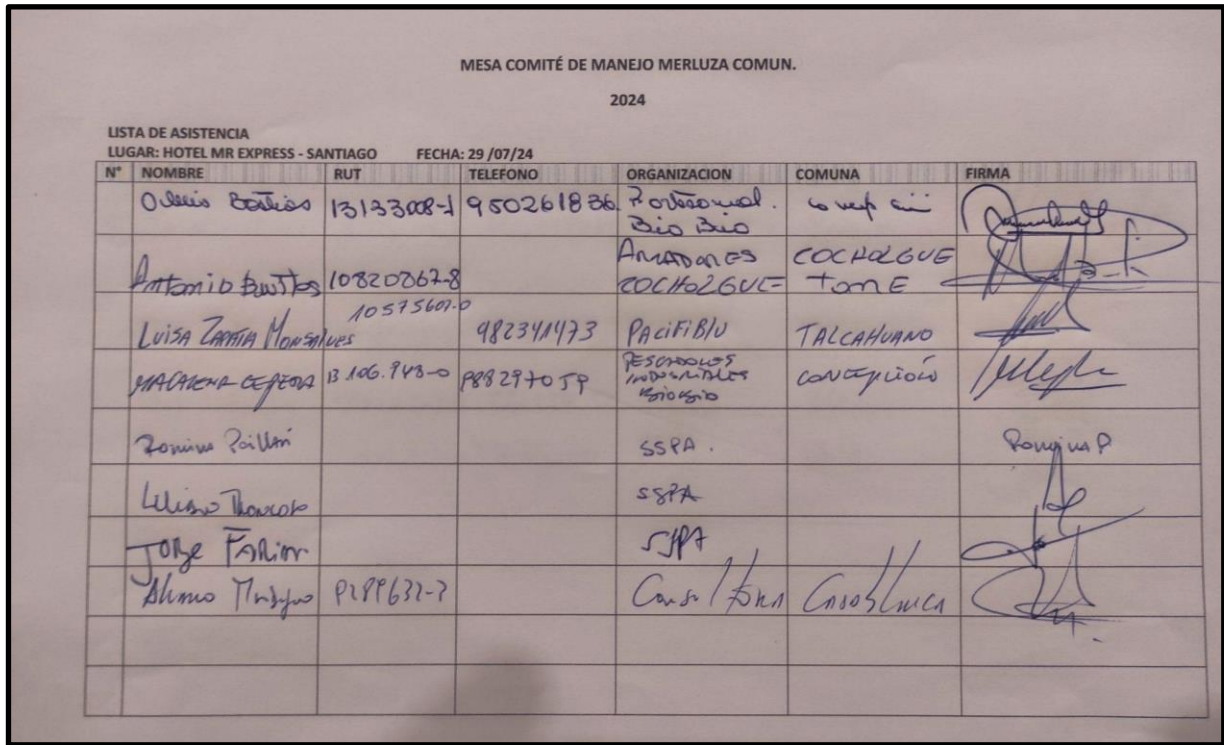 MESA COMITÉ DE MANEJO MERLUZA COMUN.
2024
LISTA DE ASISTENCIA
LUGAR: HOTEL MR EXPRESS - SANTIAGO FECHA: 29 /07/24
N° NOMBRE RUT TELEFONO ORGANIZACION COMUNA FIRMA
13133008-1 950261836
Bio Bio
Antonio 10820867-8 ARMADORES COCHOLGUE COCHOLGUE TOME
LUISA ZAPATA MONSALVES 10575607-0 982341473 PACIFIBLU TALCAHUANO
MACARENA CEPEDA 13.106.943-0 988297059 PESCADORES INDUSTRIALES BIOBIO CONCEPCIÓN
SSPA. Romina P
SSPA
JORGE FARIAS SSPA
Consultora Casablanca